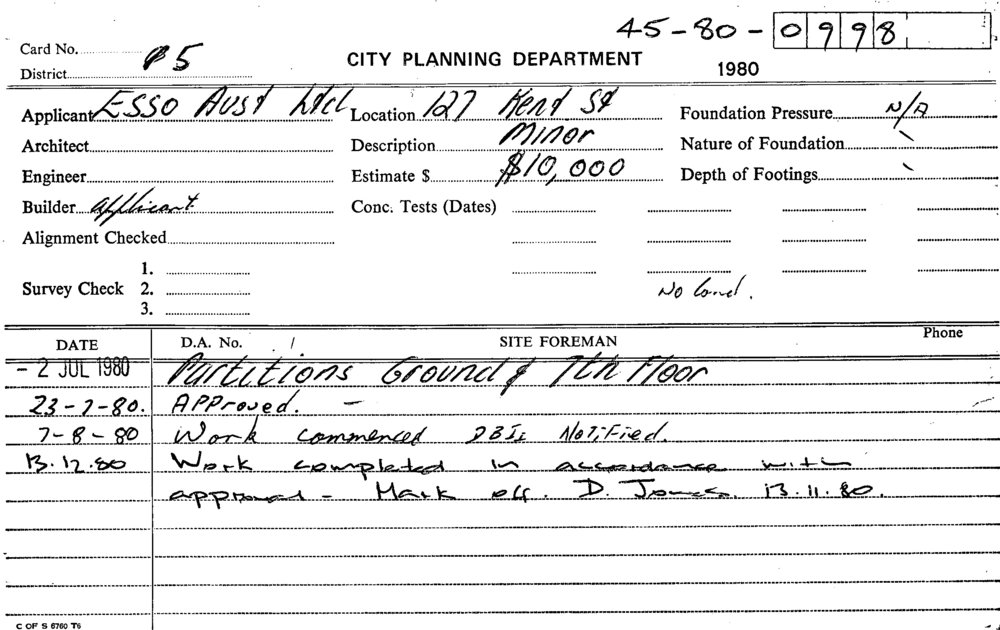 45-80-0998
Card No. P5
CITY PLANNING DEPARTMENT
District
1980
Applicant ESSO Aust Ltd Location 127 Kent St Foundation Pressure N/A
Architect Description Minor Nature of Foundation
Engineer Estimate $ $10,000 Depth of Footings
Builder applicant Conc. Tests (Dates)
Alignment Checked
1.
Survey Check 2.
No Cond.
3.
DATE D.A. No. / SITE FOREMAN Phone
- 2 JUL 1980 Partitions Ground & 7th Floor
23-7-80. APProved. -
7-8-80 Work commenced DBII Notified.
13.12.80 Work completed in accordance with
approval - Mark off. D. Jones. 13.11.80.
C OF S 6760 T6